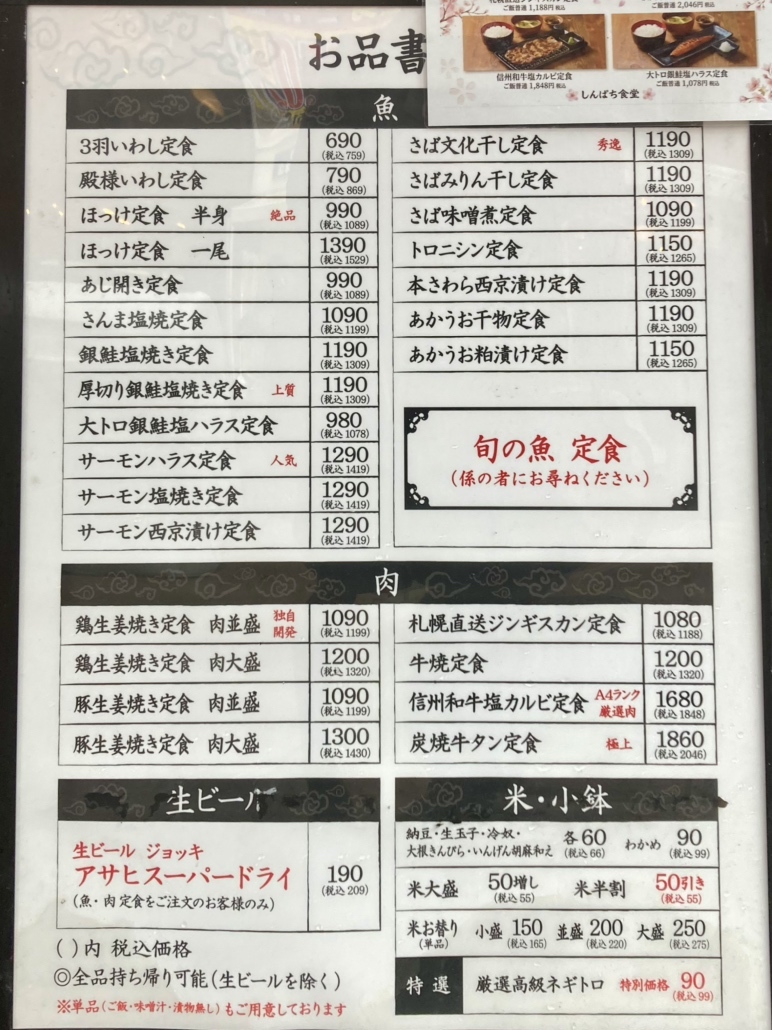 ご飯普通 1,188円 税込
ご飯普通 2,046円 税込
信州和牛塩カルビ定食
ご飯普通 1,848円 税込
大トロ銀鮭塩ハラス定食
ご飯普通 1,078円 税込
しんぱち食堂
お品書
魚
3羽いわし定食 690 (税込 759)
殿様いわし定食 790 (税込 869)
ほっけ定食 半身 絶品 990 (税込 1089)
ほっけ定食 一尾 1390 (税込 1529)
あじ開き定食 990 (税込 1089)
さんま塩焼定食 1090 (税込 1199)
銀鮭塩焼き定食 1190 (税込 1309)
厚切り銀鮭塩焼き定食 上質 1190 (税込 1309)
大トロ銀鮭塩ハラス定食 980 (税込 1078)
サーモンハラス定食 人気 1290 (税込 1419)
サーモン塩焼き定食 1290 (税込 1419)
サーモン西京漬け定食 1290 (税込 1419)
さば文化干し定食 秀逸 1190 (税込 1309)
さばみりん干し定食 1190 (税込 1309)
さば味噌煮定食 1090 (税込 1199)
トロニシン定食 1150 (税込 1265)
本さわら西京漬け定食 1190 (税込 1309)
あかうお干物定食 1190 (税込 1309)
あかうお粕漬け定食 1150 (税込 1265)
旬の魚 定食
(係の者にお尋ねください)
肉
鶏生姜焼き定食 肉並盛 独自開発 1090 (税込 1199)
鶏生姜焼き定食 肉大盛 1200 (税込 1320)
豚生姜焼き定食 肉並盛 1090 (税込 1199)
豚生姜焼き定食 肉大盛 1300 (税込 1430)
札幌直送ジンギスカン定食 1080 (税込 1188)
牛焼定食 1200 (税込 1320)
信州和牛塩カルビ定食 A4ランク厳選肉 1680 (税込 1848)
炭焼牛タン定食 極上 1860 (税込 2046)
生ビール
生ビール ジョッキ
アサヒスーパードライ 190 (税込 209)
(魚・肉 定食をご注文のお客様のみ)
( )内 税込価格
◎全品持ち帰り可能(生ビールを除く)
※単品(ご飯・味噌汁・漬物無し)もご用意しております
米・小鉢
納豆・生玉子・冷奴・
大根きんぴら・いんげん胡麻和え 各60 (税込 66) わかめ 90 (税込 99)
米大盛 50増し (税込 55) 米半割 50引き (税込 55)
米お替り (単品) 小盛 150 (税込 165) 並盛 200 (税込 220) 大盛 250 (税込 275)
特選 厳選高級ネギトロ 特別価格 90 (税込 99)